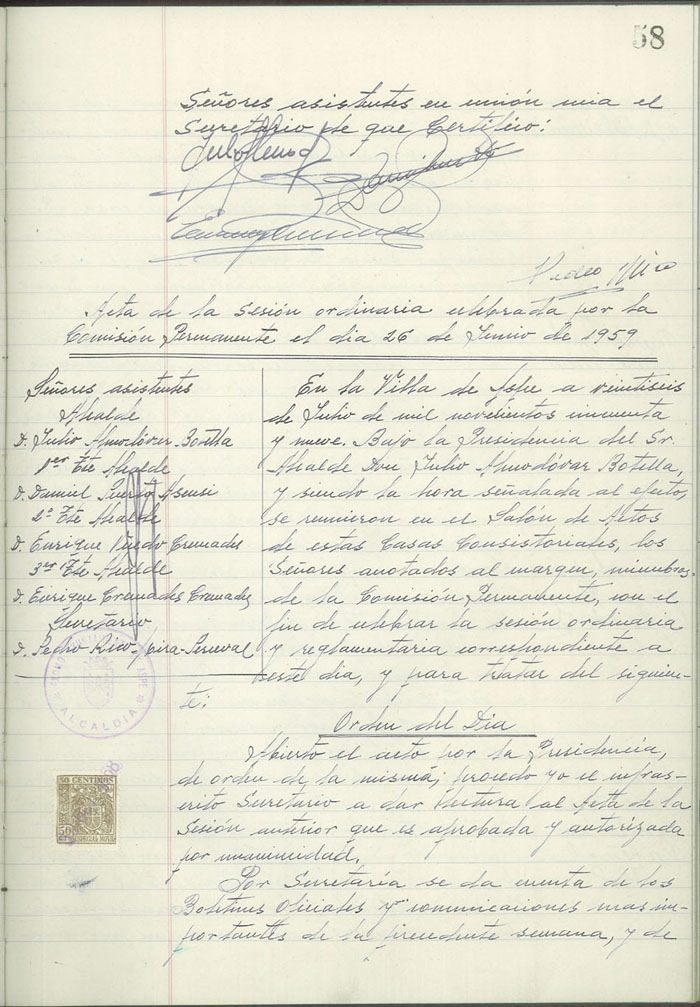 58
Señores asistentes en unión mia el
Secretario de que Certifico:
Pedro Rico
Acta de la sesión ordinaria celebrada por la
Comisión Permanente el dia 26 de Junio de 1959
Señores asistentes
Alcalde
D. Julio Almodóvar Botella
1er Tte Alcalde
D. Daniel Puerto Asensi
2º Tte Alcalde
D. Enrique Pujedo Cremades
3er Tte Alcalde
D. Enrique Cremades Cremades
Secretario
D. Pedro Rico
En la Villa de Aspe a veintiseis
de Julio de mil novecientos cincuenta
y nueve. Bajo la Presidencia del Sr.
Alcalde Don Julio Almodóvar Botella,
y siendo la hora señalada al efecto,
se reunieron en el Salón de Actos
de estas Casas Consistoriales, los
Señores anotados al margen, miembros
de la Comisión Permanente, con el
fin de celebrar la sesión ordinaria
y reglamentaria correspondiente a
este dia, y para tratar del siguien-
te:
Orden del Dia
Abierto el acto por la Presidencia,
de orden de la misma; procedo yo el infras-
crito Secretario a dar lectura al Acta de la
Sesión anterior que es aprobada y autorizada
por unanimidad.
Por Secretaría se da cuenta de los
Boletines Oficiales y comunicaciones mas im-
portantes de la precedente semana, y de
ALCALDIA
50 CENTIMOS
50
ESPECIAL MOVIL